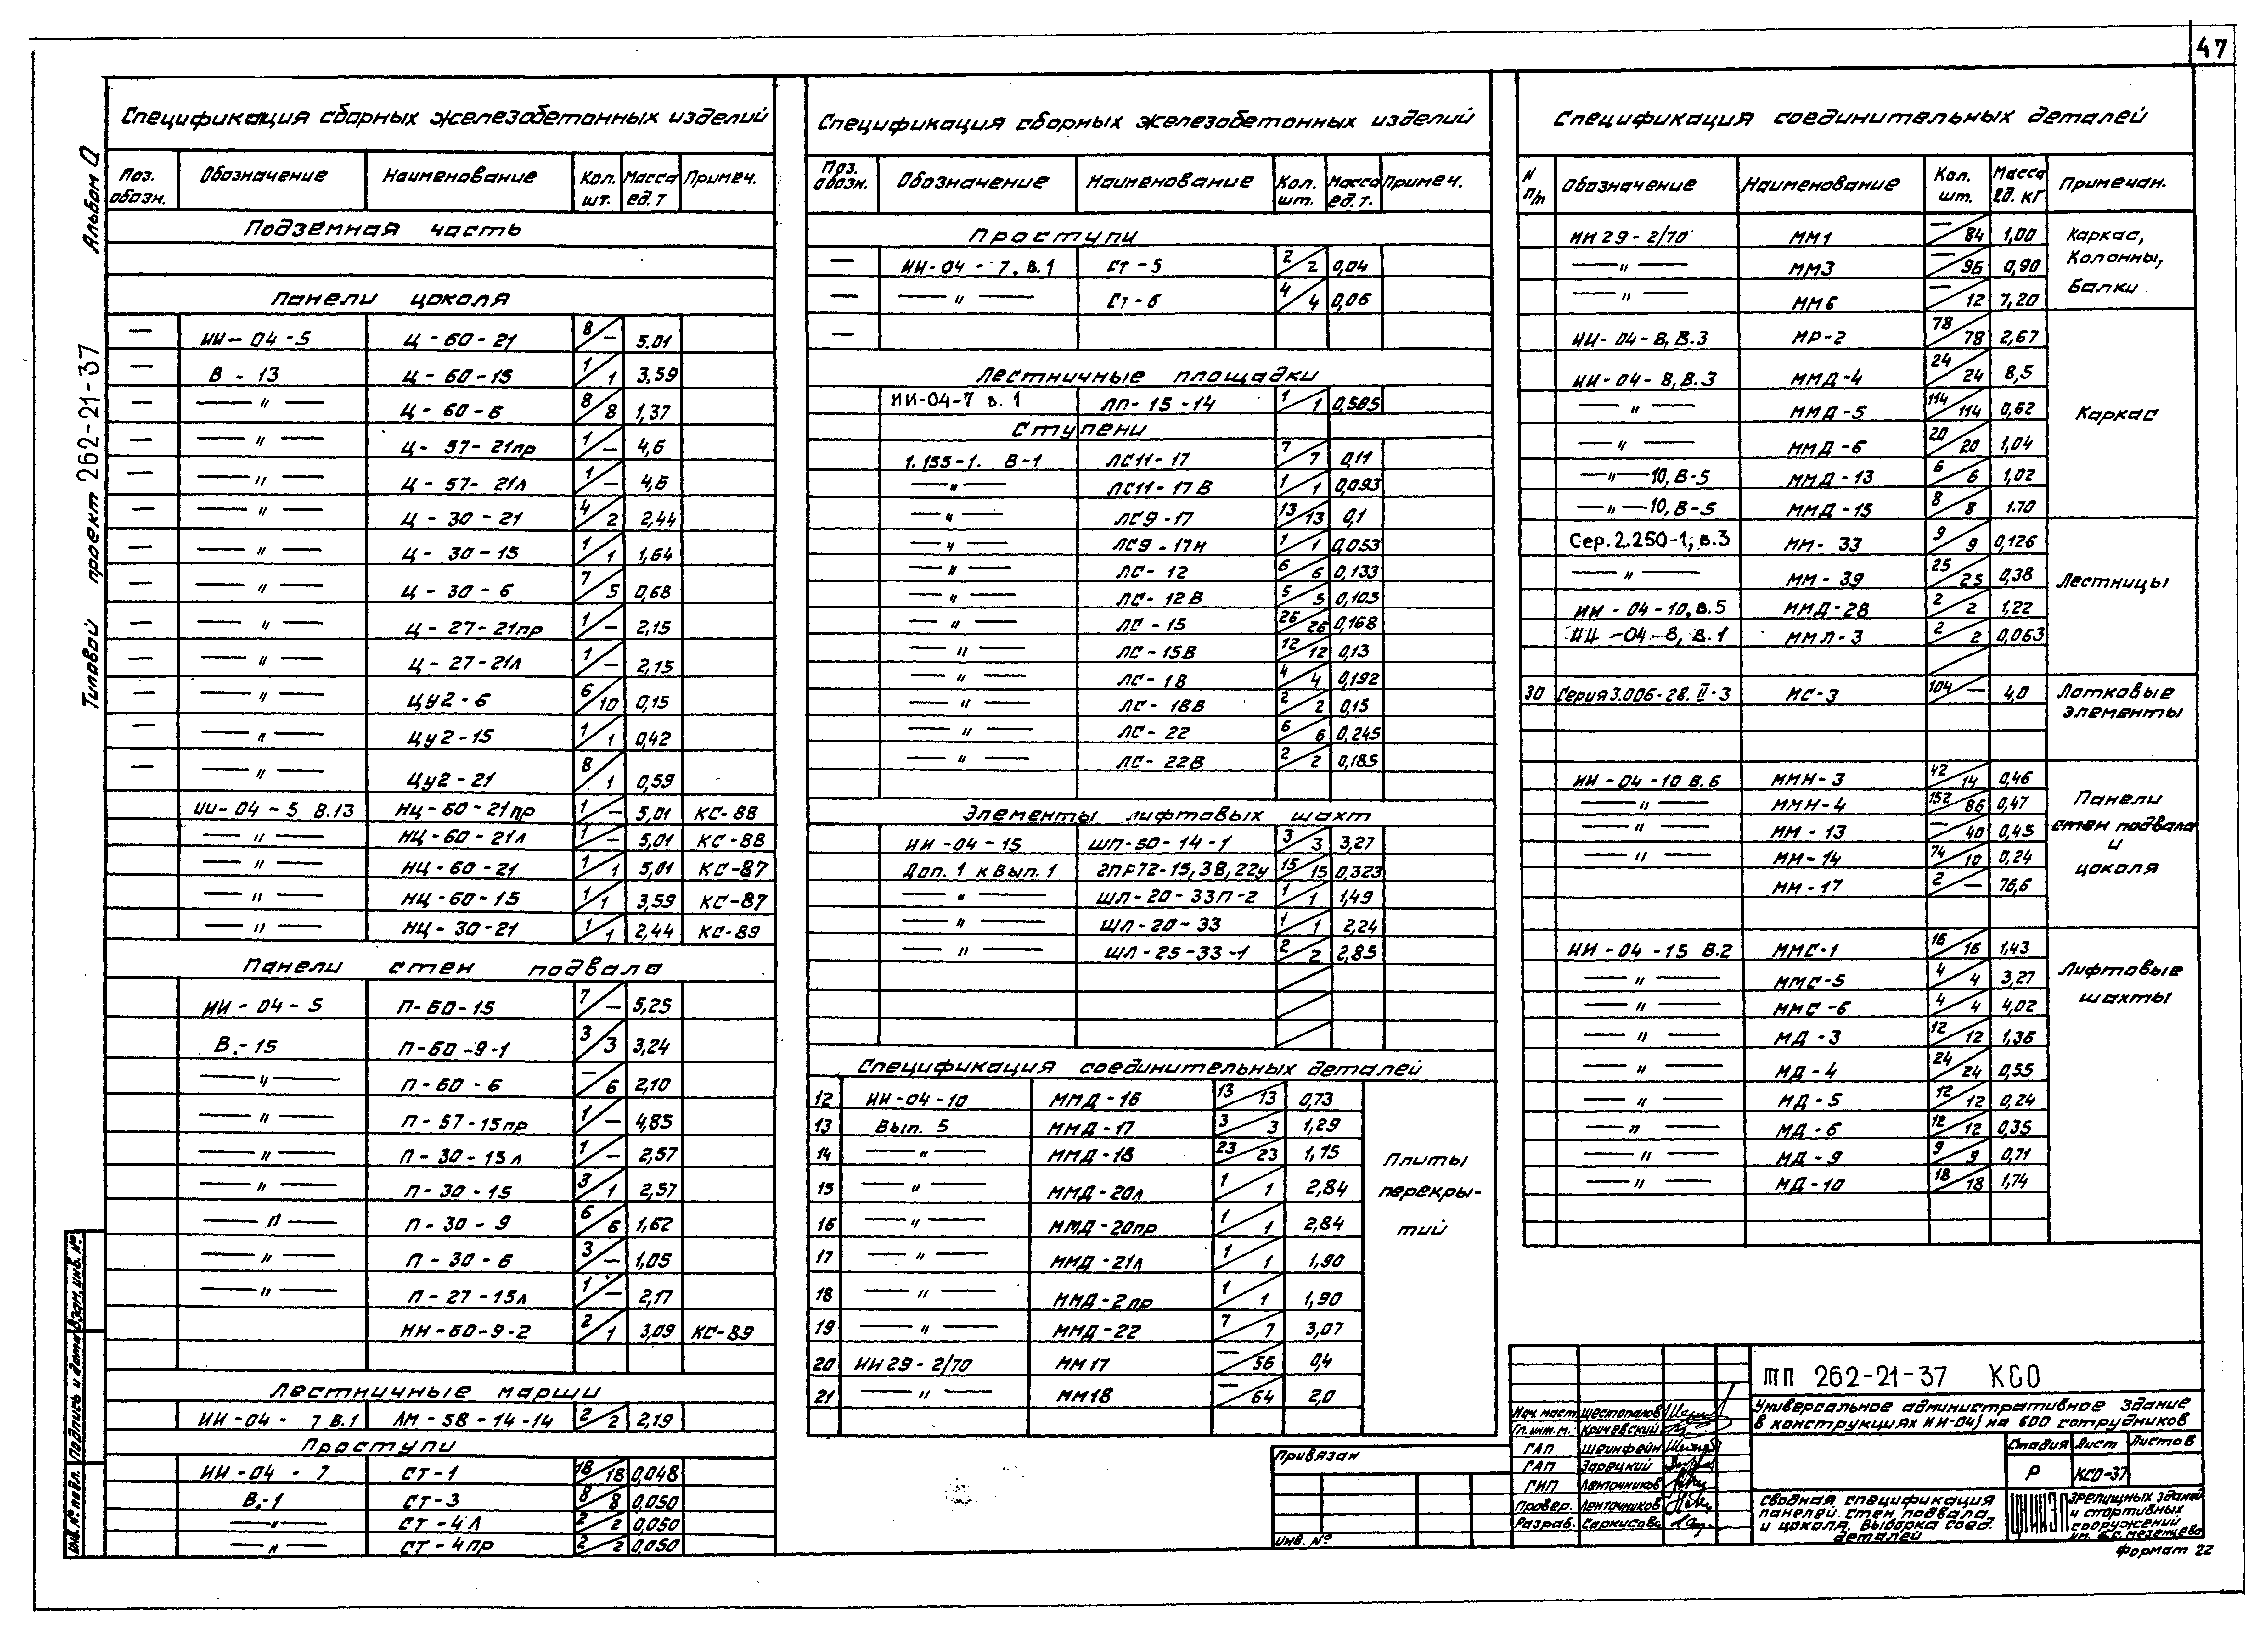 47
Альбом
Типовой проект 262-21-37
Спецификация сборных железобетонных изделий
Поз. обозн. Обозначение Наименование Кол. шт. Масса ед. т Примеч.
Подземная часть
Панели цоколя
— ИИ-04-5 Ц-60-21 8/— 5.01
— В-13 Ц-60-15 1/1 3,59
— —〃— Ц-60-6 8/8 1,37
— —〃— Ц-57-21пр 1/— 4,6
— —〃— Ц-57-21л 1/— 4,6
— —〃— Ц-30-21 4/2 2,44
— —〃— Ц-30-15 1/1 1,64
— —〃— Ц-30-6 7/5 0,68
— —〃— Ц-27-21пр 1/— 2,15
— —〃— Ц-27-21л 1/— 2,15
— —〃— ЦУ2-6 6/10 0,15
— —〃— ЦУ2-15 1/1 0,42
— —〃— ЦУ2-21 8/1 0,59
ИИ-04-5 В.13 НЦ-60-21пр 1/— 5,01 КС-88
—〃— НЦ-60-21л 1/— 5,01 КС-88
—〃— НЦ-60-21 1/1 5,01 КС-87
—〃— НЦ-60-15 1/1 3,59 КС-87
—〃— НЦ-30-21 1/1 2,44 КС-89
Панели стен подвала
ИИ-04-5 П-60-15 7/— 5,25
В.-15 П-60-9-1 3/3 3,24
—〃— П-60-6 —/6 2,10
—〃— П-57-15пр 1/— 4,85
—〃— П-30-15л 1/— 2,57
—〃— П-30-15 3/1 2,57
—〃— П-30-9 6/6 1,62
—〃— П-30-6 3/— 1,05
—〃— П-27-15л 1/— 2,17
НН-60-9-2 2/1 3,09 КС-89
Лестничные марши
ИИ-04-7 В.1 ЛМ-58-14-14 2/2 2,19
Проступи
ИИ-04-7 СТ-1 18/18 0,048
В.-1 СТ-3 8/8 0,050
—〃— СТ-4Л 2/2 0,050
—〃— СТ-4ПР 2/2 0,050
Взам. инв. №
Подпись и дата
Инв. № подл.
Спецификация сборных железобетонных изделий
Поз. обозн. Обозначение Наименование Кол. шт. Масса ед. т. Примеч.
Проступи
— ИИ-04-7, в.1 СТ-5 2/2 0,04
— —〃— Ст-6 4/4 0,06
—
Лестничные площадки
ИИ-04-7 в.1 ЛП-15-14 1/1 0,585
Ступени
1.155-1. В-1 ЛС11-17 7/7 0,11
—〃— ЛС11-17В 1/1 0,093
—〃— ЛС9-17 13/13 0,1
—〃— ЛС9-17Н 1/1 0,053
—〃— ЛС-12 6/6 0,133
—〃— ЛС-12В 5/5 0,103
—〃— ЛС-15 26/26 0,168
—〃— ЛС-15В 12/12 0,13
—〃— ЛС-18 4/4 0,192
—〃— ЛС-18В 2/2 0,15
—〃— ЛС-22 6/6 0,245
—〃— ЛС-22В 2/2 0,185
Элементы лифтовых шахт
ИИ-04-15 ШП-50-14-1 3/3 3,27
Доп. 1 к Вып. 1 2ПР72-15,38,22у 15/15 0,323
—〃— ШЛ-20-33П-2 1/1 1,49
—〃— ШЛ-20-33 1/1 2,24
—〃— ШЛ-25-33-1 2/2 2,85
Спецификация соединительных деталей
12 ИИ-04-10 ММД-16 13/13 0,73
13 Вып. 5 ММД-17 3/3 1,29
14 —〃— ММД-18 23/23 1,15
15 —〃— ММД-20л 1/1 2,84
16 —〃— ММД-20пр 1/1 2,84
17 —〃— ММД-21л 1/1 1,90
18 —〃— ММД-2пр 1/1 1,90
19 —〃— ММД-22 7/7 3,07
20 ИИ29-2/70 ММ17 —/56 0,4
21 —〃— ММ18 —/64 2,0
Плиты
перекры-
тий
Спецификация соединительных деталей
N п/п Обозначение Наименование Кол. шт. Масса ед. кг Примечан.
ИИ29-2/70 ММ1 —/84 1,00 Каркас,
—〃— ММ3 —/96 0,90 Колонны,
—〃— ММ6 —/12 7,20 Балки
ИИ-04-8, В.3 МР-2 78/78 2,67
ИИ-04-8, В.3 ММД-4 24/24 8,5
—〃— ММД-5 114/114 0,62 Каркас
—〃— ММД-6 20/20 1,04
—〃—10, В-5 ММД-13 6/6 1,02
—〃—10, В-5 ММД-15 8/8 1.70
Сер. 2.250-1; в.3 ММ-33 9/9 0,126
—〃— ММ-39 25/25 0,38 Лестницы
ИИ-04-10, в.5 ММД-28 2/2 1,22
ИИ-04-8, в.1 ММЛ-3 2/2 0,063
30 Серия 3.006-2в. II-3 МС-3 104/— 4,0 Лотковые
элементы
ИИ-04-10 В.6 ММН-3 42/14 0,46
—〃— ММН-4 152/86 0,47 Панели
—〃— ММ-13 —/40 0,45 стен подвала
—〃— ММ-14 74/10 0,24 и
ММ-17 2/— 76,6 цоколя
ИИ-04-15 В.2 ММС-1 16/16 1,43
—〃— ММС-5 4/4 3,27 Лифтовые
—〃— ММС-6 4/4 4,02 шахты
—〃— МД-3 12/12 1,36
—〃— МД-4 24/24 0,55
—〃— МД-5 12/12 0,24
—〃— МД-6 12/12 0,35
—〃— МД-9 9/9 0,71
—〃— МД-10 18/18 1,74
Привязан
Инв. №
Нач. маст. Шестопалов
Гл. инж. м. Кричевский
ГАП Шейнфейн
ГАП Зарецкий
ГИП Ленточников
Провер. Ленточников
Разраб. Саркисова
ТП 262-21-37 КСО
Универсальное административное здание
в конструкциях ИИ-04) на 600 сотрудников
Стадия Лист Листов
Р КСО-37
Сводная спецификация
панелей стен подвала
и цоколя. Выборка соед.
деталей
ЦНИИЭП зрелищных зданий
и спортивных
сооружений
им. Б.С. Мезенцева
Формат 22